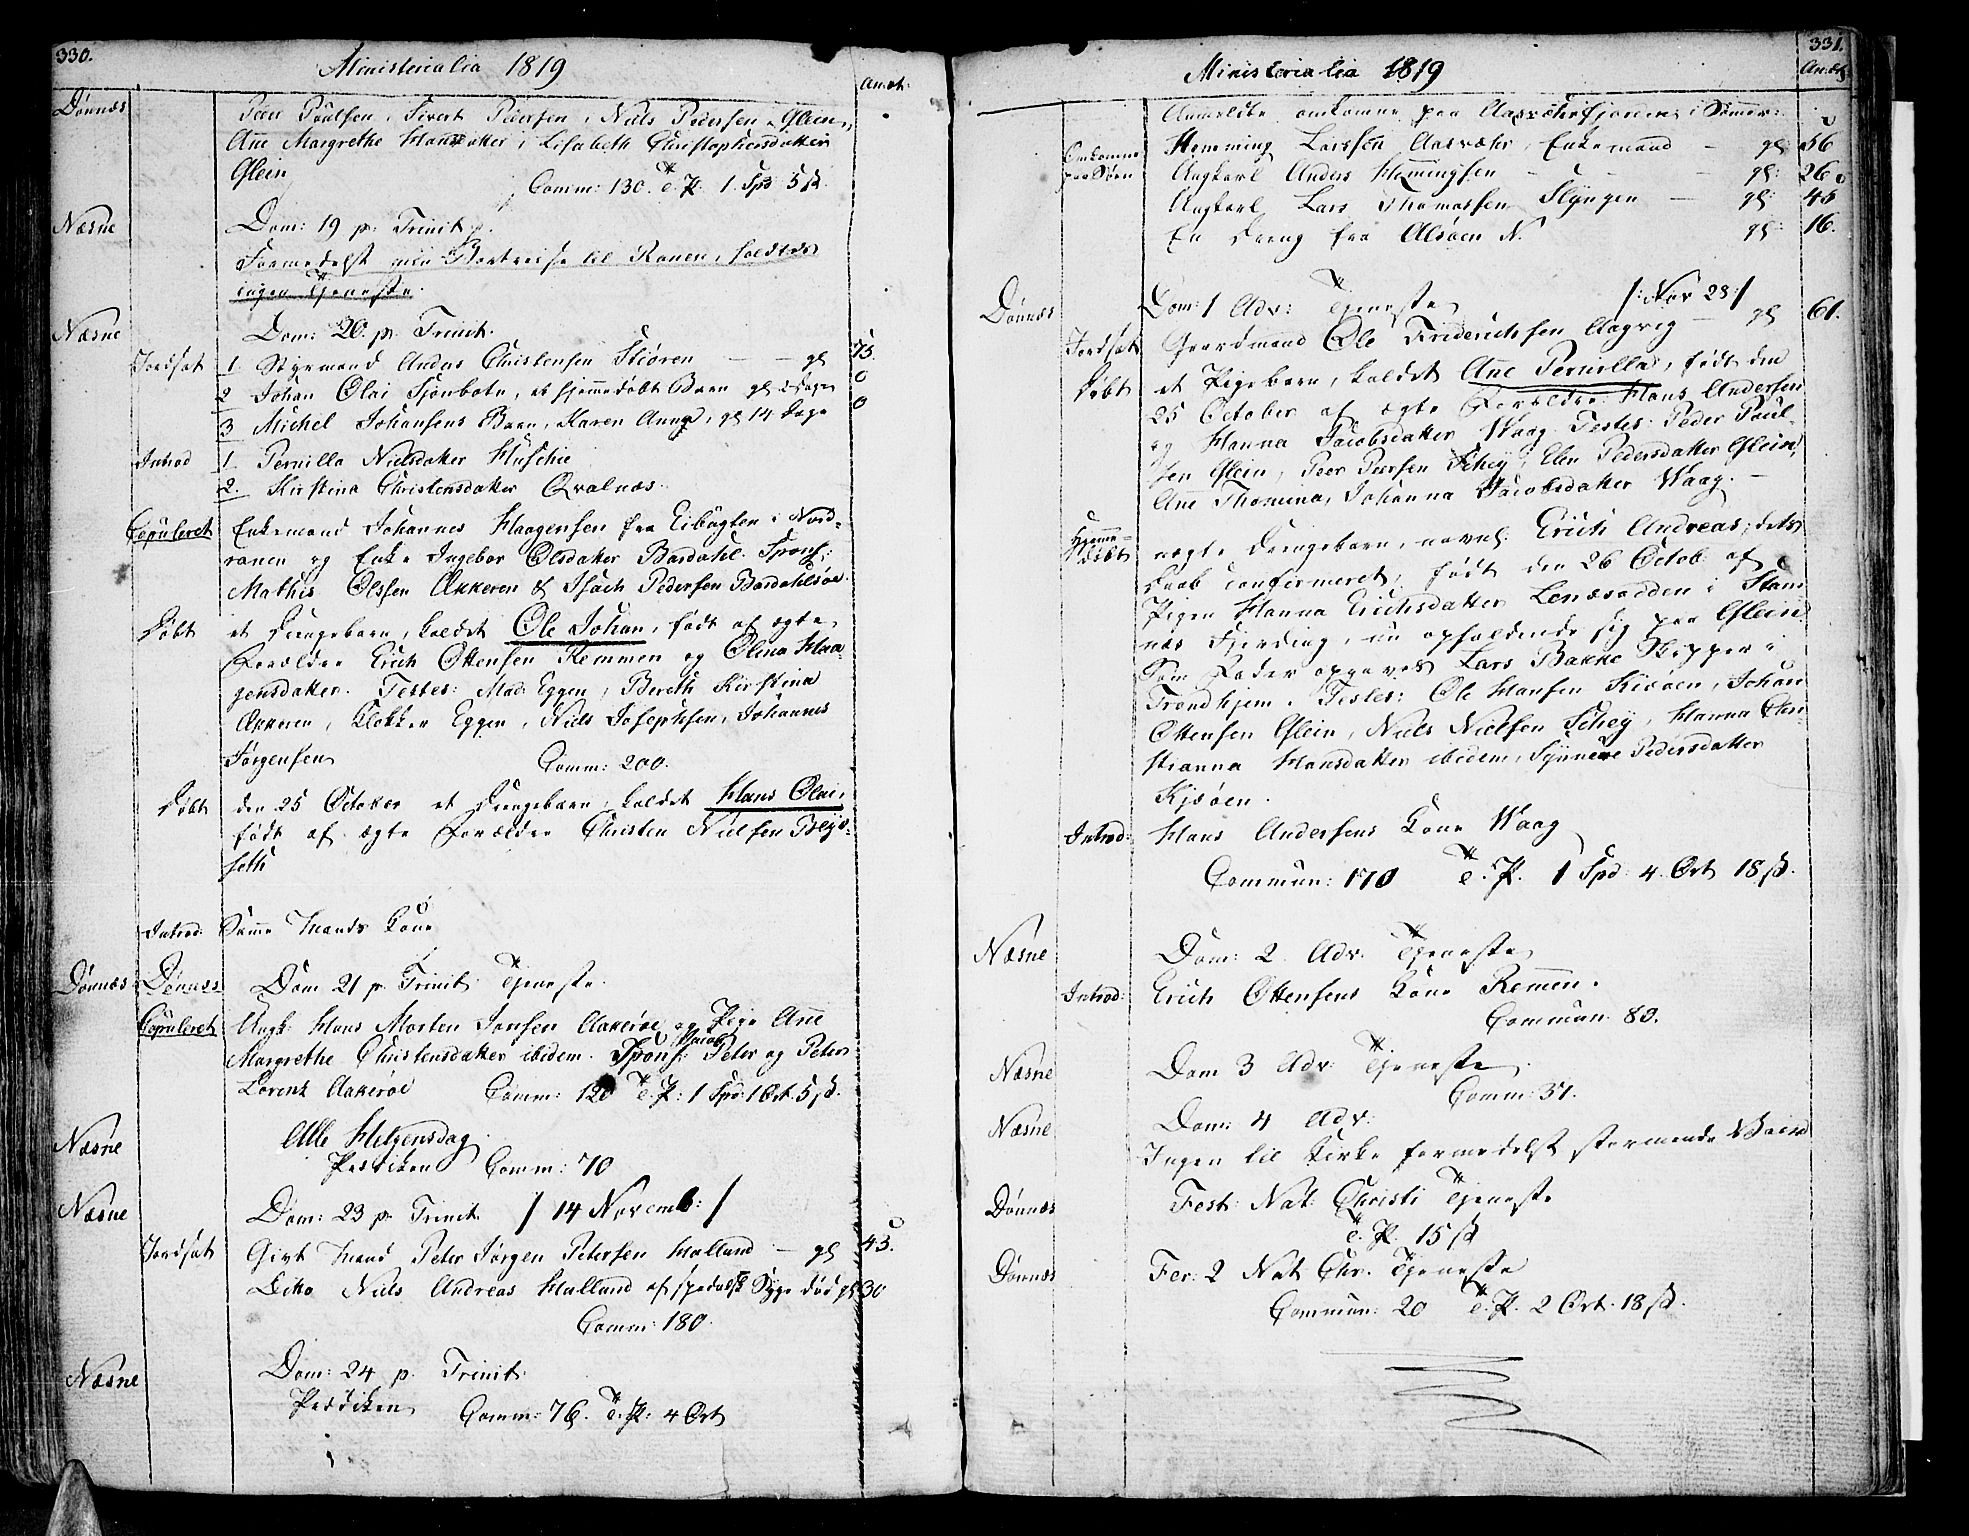 330.
Ministerialia 1819
Aaret:
Dønnæs
Peer Poulsen, Sivert Pedersen, Niels Pedersen Glein,
Ane Margrethe Hansdatter, Lisabeth Christophersdatter
Glein
Comm: 130. T. P. 1 Spd 5 ß.
Næsne
Dom: 19 p. Trinit.
Formedelst min Bortreise til Ranen, holdtes
ingen Tjeneste.
Næsne
Dom: 20. p. Trinit.
Jordsat 1. Styrmand Anders Christensen Skiøren - gl 75.
2 Johan Olai Sjonbotn, et hjemmedøbt Barn gl 2 Dage 0
3 Michel Johansens Barn, Karen Anna, gl 14 Dage 0
Introd 1. Pernilla Nielsdatter Husbye
2. Kirstina Christensdatter Qvalnæs.
Copuleret Enkemand Johannes Haagensen fra Eibugten i Nord-
ranen og Enke Ingebor Olsdatter Bardahl. Spons:
Mathis Olssen Akkeren & Isach Pedersen Bardahlsøe.
Døbt et Drengebarn, kaldet Ole Johan, født af ægte
Forældre Erich Ottensen Remmen og Olina Haa-
gensdatter. Testes: Mad Eggen, Bereth Kirstina
Akkeren, Klokker Eggen, Niels Josephsen, Johannes
Jørgensen
Comm: 200.
Døbt den 25 October et Drengebarn, kaldet Hans Olai,
født af ægte Forældre Christen Nielsen Bejs-
seth
Introd: Samme Mands Kone
Dønnæs Dønnæs Dom 21 p. Trinit. Tjeneste.
Copuleret Ungk: Hans Morten Jonsen Aakerøe og Pige Ane
Margrethe Christensdatter ibidem. Spons: Peter Jacob og Peter
Lorentz Aakerøe Comm: 120 T. P: 1 Spd: 1 Ort 5 ß.
Næsne
Alle Helgensdag
Prædiken Comm: 70
Næsne
Dom: 23 p. Trinit. /: 14 Novemb: /
Jordsat Givt Mand Peter Jørgen Petersen Halland - gl 43.
Ditto Niels Andreas Halland af spedalsk Syge død gl 30
Comm: 180.
Næsne
Dom: 24 p. Trinit:
Prædiken Comm: 76. T. P: 4 Ort
331.
Ministerialia 1819
Aaret
Anmeldte omkomne paa Aasværfjorden i Sommer:
Omkomne
paa Søen
Hemming Larssen Aasvær, Enkemand - gl: 56
Ungkarl Anders Hemmingsen - gl: 26
Ungkarl Lars Thomassen Slyngen - gl: 45
En Dreng fra Alsøen N. gl: 16.
Dønnæs
Dom: 1 Adv: Tjeneste /: Nov 28:/
Jordsat Gaardmand Ole Friderichsen Aagvig - gl 61.
Døbt et Pigebarn, kaldet Ane Pernilla, født den
25 October af ægte Forældre Hans Andersen
og Hanna Jacobsdatter Waag. Testes: Peder Poul-
sen Glein, Peer Peersen Schey, Elen Pedersdatter Glein,
Ane Thomina, Johanna Jacobsdatter Waag.
Hjemme-
døbt
uægte Drengebarn, navnl: Erich Andreas, dets
Daab confirmeret, født den 26 Octob. af
Pigen Hanna Erichsdatter Lenesodden i Stam-
næs Fjerding, nu opholdende sig paa Glein
Som Fader opgaves Lars Bakke Skipper i
Trondhjem. Testes: Ole Hansen Kisøen, Johan
Ottensen Glein, Niels Nielsen Schey, Hanna Chri-
stianna Hansdatter ibidem, Synneve Pedersdatter
Kjsøen.
Introd: Hans Andersens Kone Waag
Commun: 170 T. P. 1 Spd: 4 Ort 18 ß.
Næsne
Dom: 2 Adv. Tjeneste
Introd: Erich Ottensens Kone Remmen.
Commun. 80.
Næsne
Dom 3 Adv: Tjeneste
Comm: 31.
Næsne
Dom: 4 Adv:
Ingen til Kirke formedelst stormende Veir
Dønnæs
Fest: Nat: Christi Tjeneste
T. P. 15 ß
Dønnæs
Fer: 2 Nat: Chr. Tjeneste
Commun: 20 T. P. 2 Ort. 18 ß.